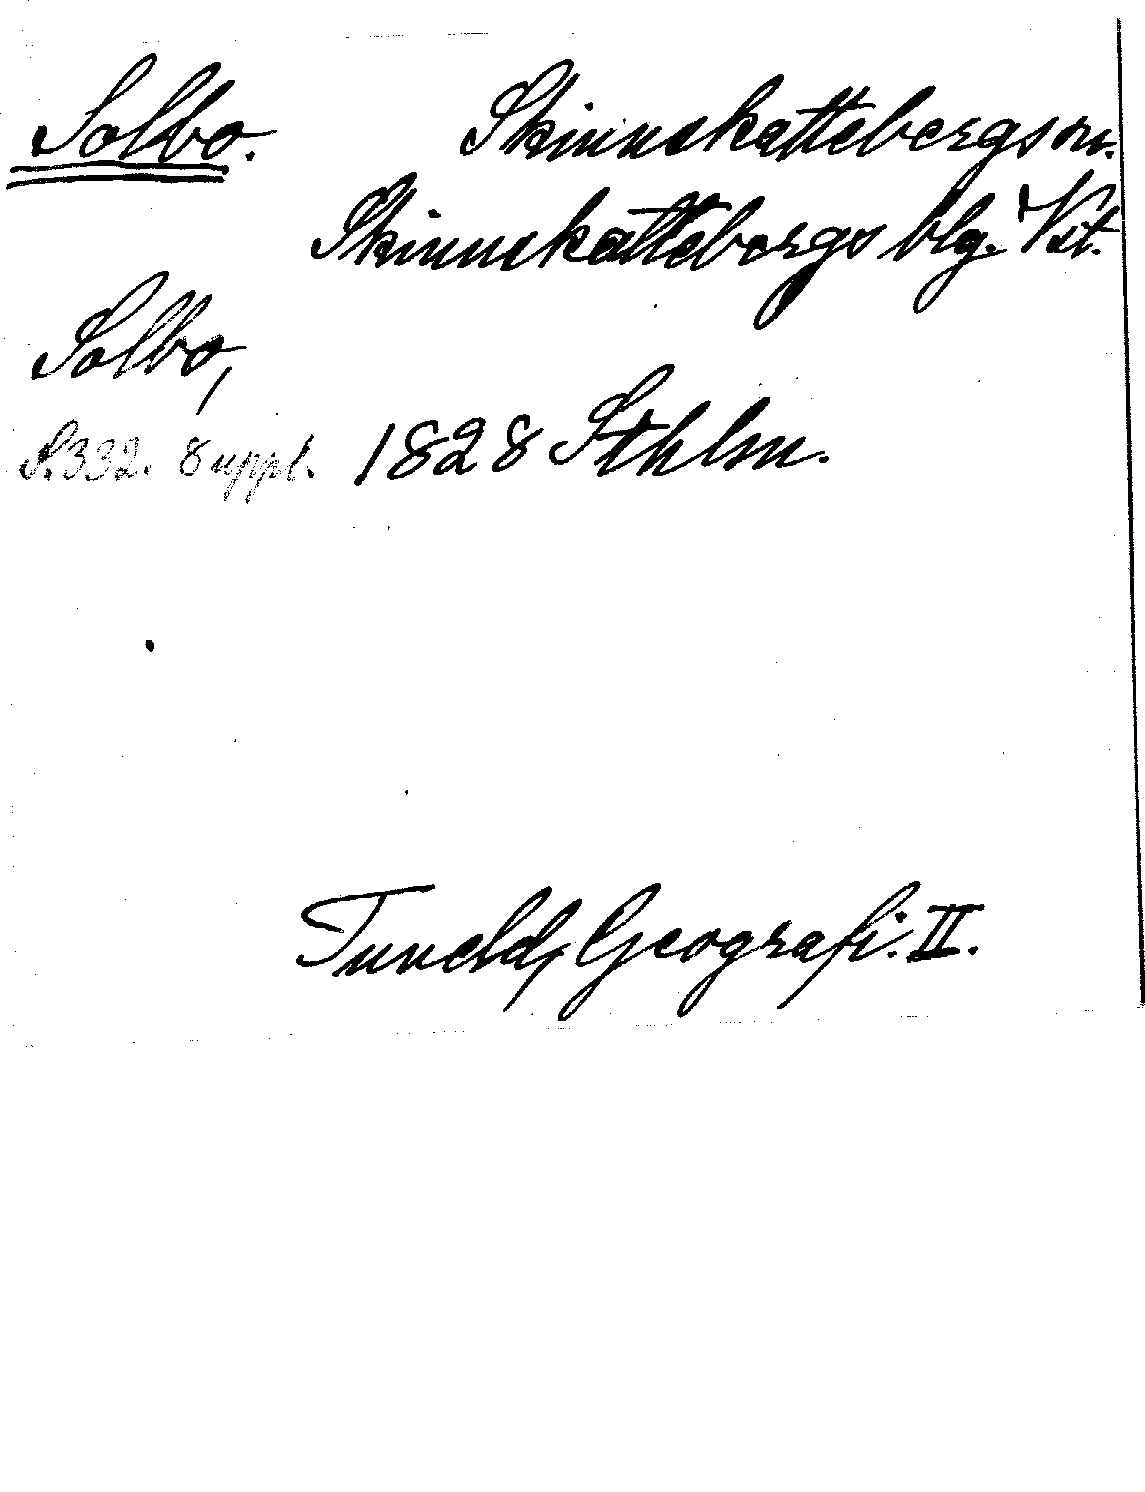 Solbo. Skinnskattebergs sn.
Skinnskattebergs blg. Vst.
Solbo,
S. 332. 8 uppl. 1828 Sthlm.
Tuneld, Geografi. II.